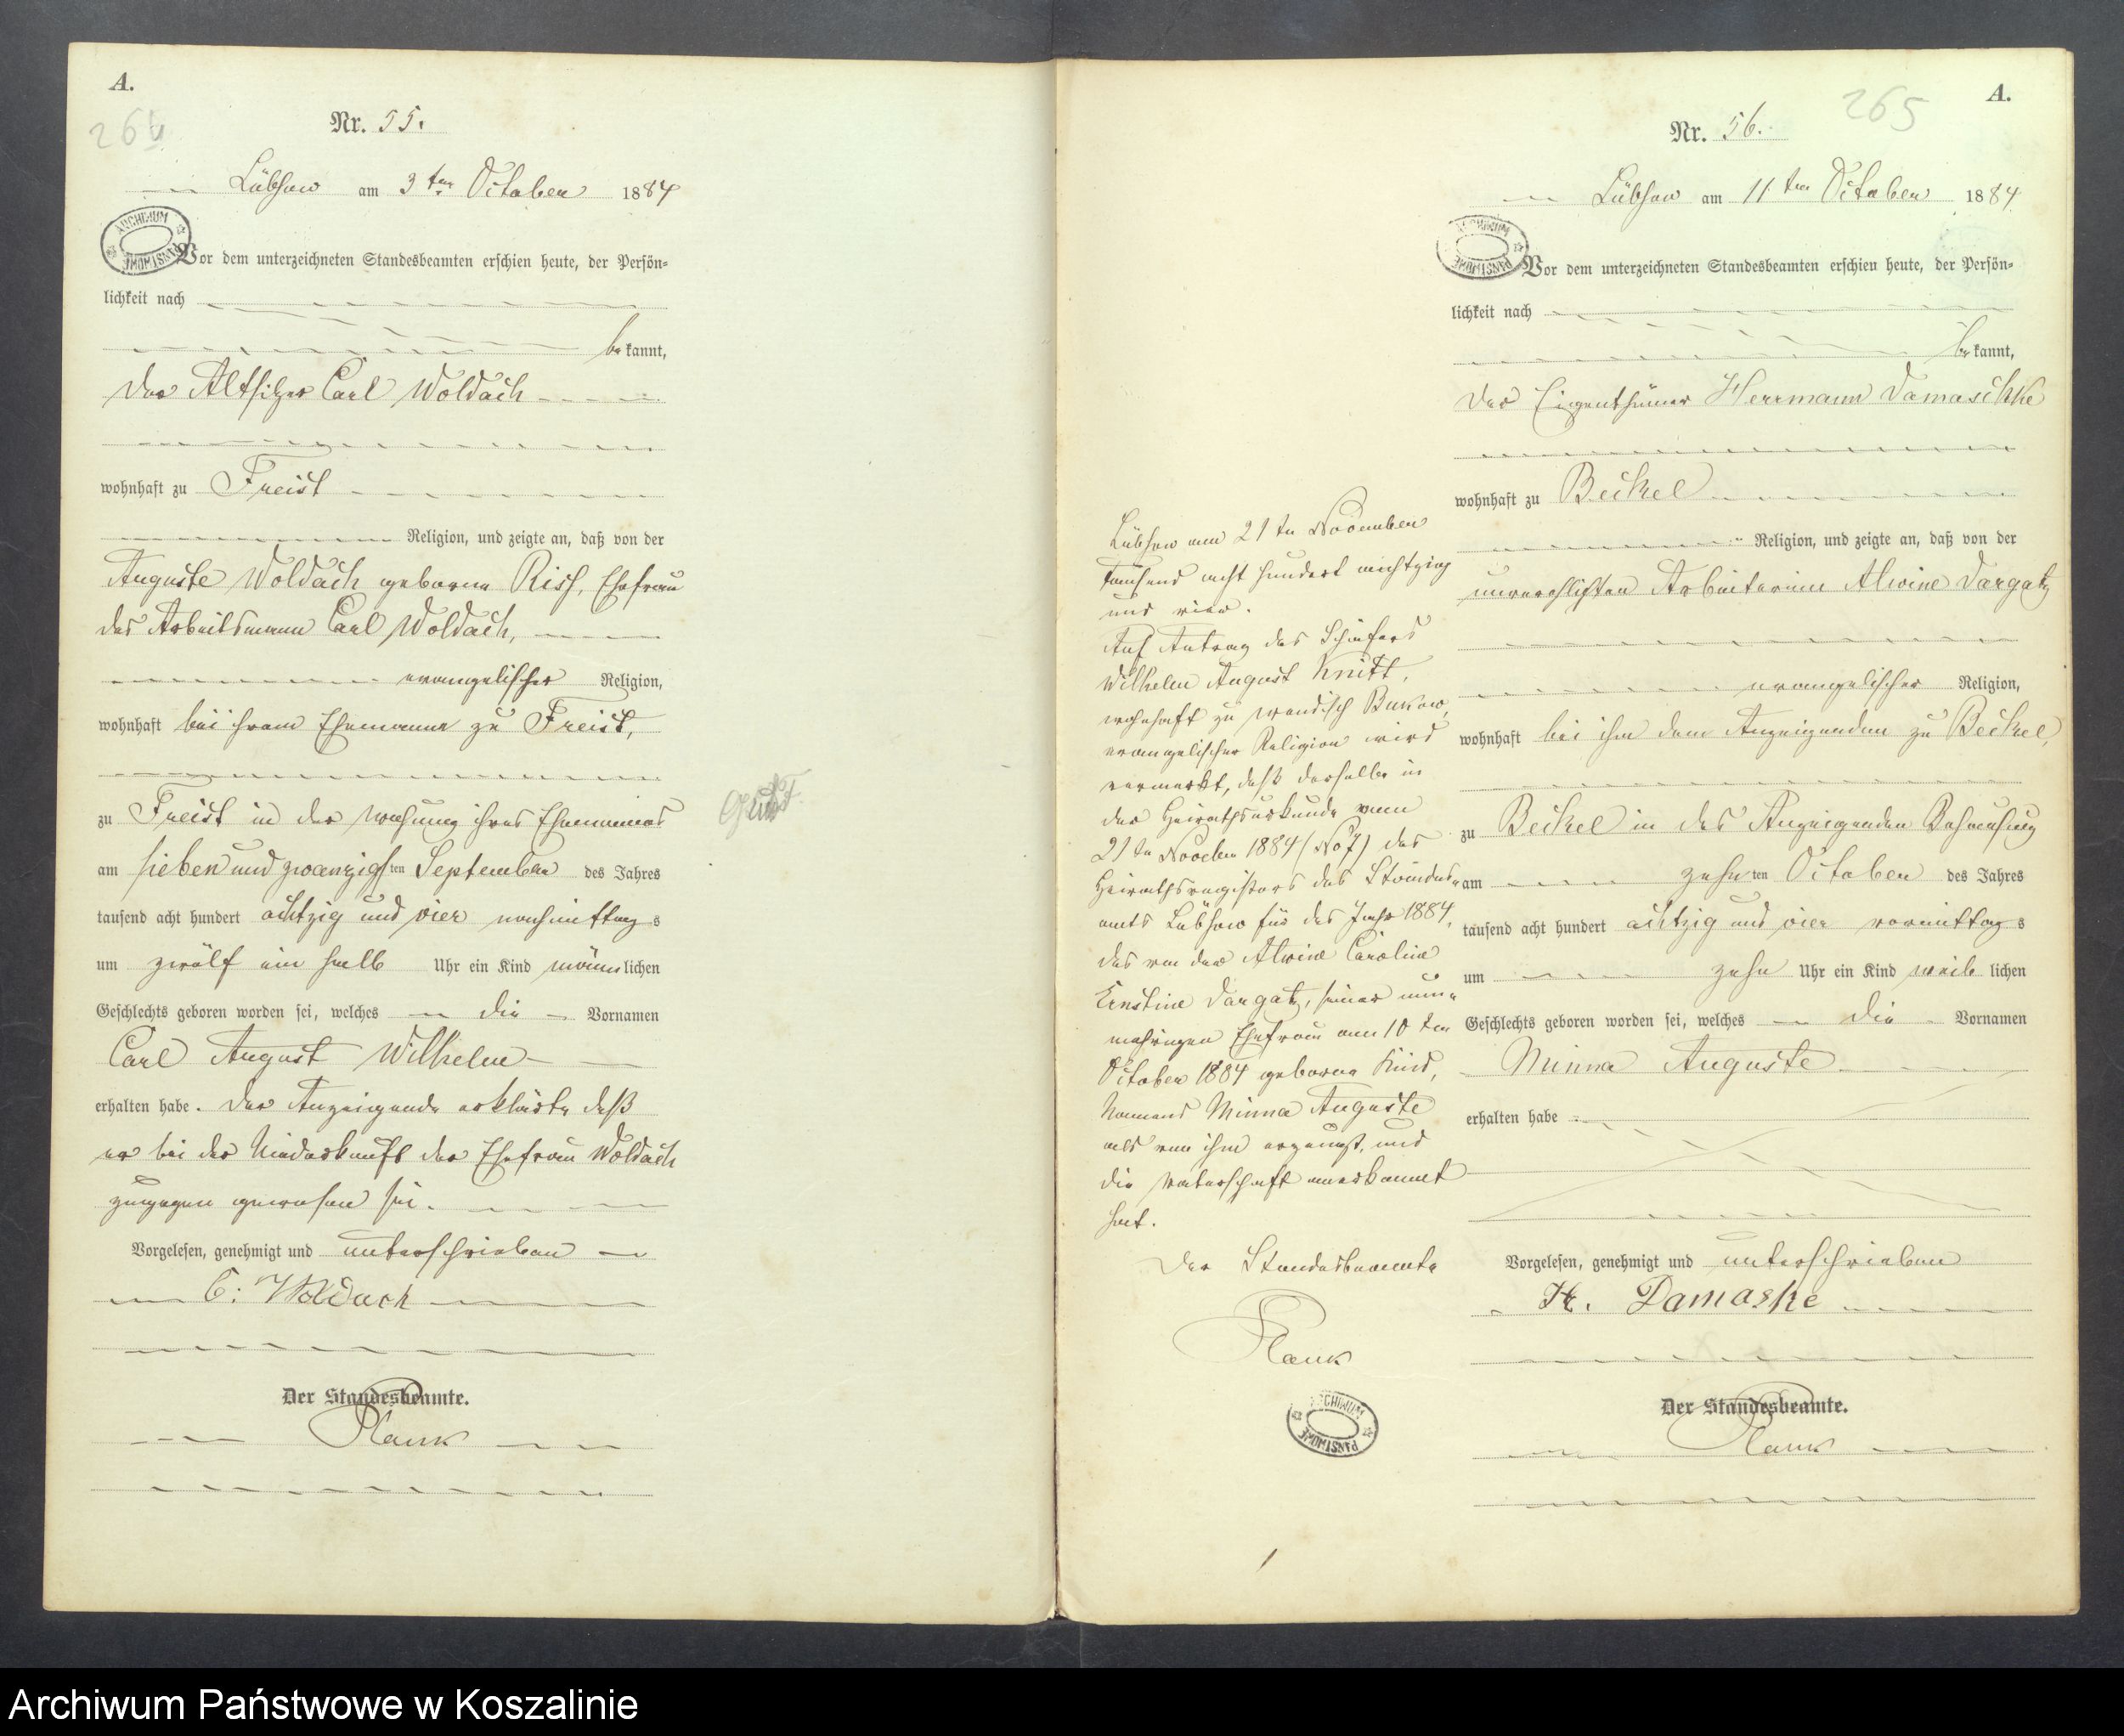 A.
264
Nr. 55.
Lübsow am 3ten October 1884
ARCHIWUM PAŃSTWOWE
Vor dem unterzeichneten Standesbeamten erschien heute, der Persön=
lichkeit nach
bekannt,
der Altsitzer Carl Woldach
wohnhaft zu Freist
Religion, und zeigte an, daß von der
Auguste Woldach geborne Risch, Ehefrau
des Arbeitsmann Carl Woldach,
evangelischer Religion,
wohnhaft bei ihrem Ehemanne zu Freist,
zu Freist in der Wohnung ihres Ehemannes
am sieben und zwanzigsten September des Jahres
tausend acht hundert achtzig und vier nachmittags
um zwölf ein halb Uhr ein Kind männlichen
Geschlechts geboren worden sei, welches die Vornamen
Carl August Wilhelm
erhalten habe. Der Anzeigende erklärte daß
er bei der Niederkunft der Ehefrau Woldach
zugegen gewesen sei.
Vorgelesen, genehmigt und unterschrieben
C: Woldach
Der Standesbeamte.
Plank
A.
265
Nr. 56.
Lübsow am 11ten October 1884
ARCHIWUM PAŃSTWOWE
Vor dem unterzeichneten Standesbeamten erschien heute, der Persön=
lichkeit nach
bekannt,
der Eigenthümer Herrmann Damaschke
wohnhaft zu Beckel
Religion, und zeigte an, daß von der
unverehlichten Arbeiterin Alwine Dargatz
evangelischer Religion,
wohnhaft bei ihm dem Anzeigenden zu Beckel,
zu Beckel in des Anzeigenden Behausung
am zehnten October des Jahres
tausend acht hundert achtzig und vier vormittags
um zehn Uhr ein Kind weiblichen
Geschlechts geboren worden sei, welches die Vornamen
Minna Auguste
erhalten habe.
Vorgelesen, genehmigt und unterschrieben
H. Damaske
Der Standesbeamte.
Plank
Lübsow am 21ten November
tausend acht hundert achtzig
und vier.
Auf Antrag des Schäfers
Wilhelm August Knitt,
wohnhaft zu wendisch Bukow,
evangelischer Religion wird
vermerkt, daß derselbe in
der Heirathsurkunde vom
21ten November 1884 (No 7) des
Heirathsregisters des Standes=
amts Lübsow für das Jahr 1884,
das von der Alwine Caroline
Ernstine Dargatz, seiner nun=
mehrigen Ehefrau am 10ten
October 1884 geborne Kind,
Namens Minna Auguste
als von ihm erzeugt, und
die Vaterschaft anerkannt
hat.
Der Standesbeamte
Plank
ARCHIWUM PAŃSTWOWE
Archiwum Państwowe w Koszalinie